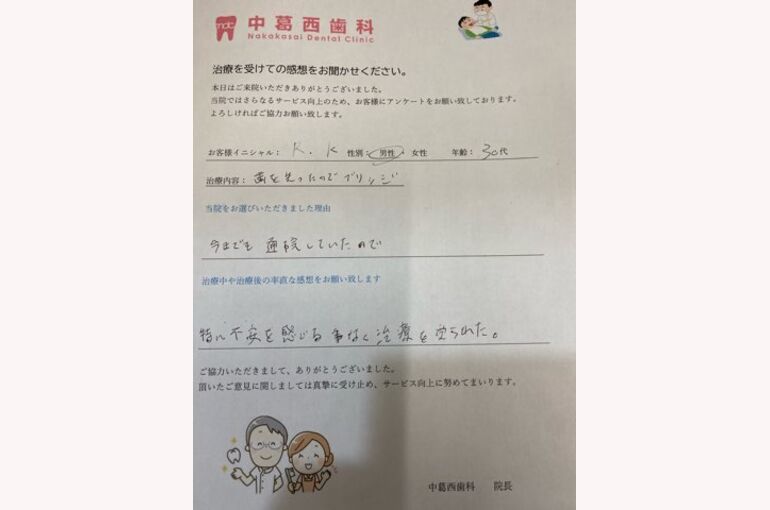 ndc 中葛西歯科
Nakakasai Dental Clinic
治療を受けての感想をお聞かせください。
本日はご来院いただきありがとうございました。
当院ではさらなるサービス向上のため、お客様にアンケートをお願い致しております。
よろしければご協力お願い致します。
お客様イニシャル： K．K 性別：男性・女性 年齢：30代
治療内容：歯を失ったのでブリッジ
当院をお選びいただきました理由
今までも通院していたので
治療中や治療後の率直な感想をお願い致します
特に不安を感じる事なく治療を受られた。
ご協力いただきまして、ありがとうございました。
頂いたご意見に関しましては真摯に受け止め、サービス向上に努めてまいります。
中葛西歯科 院長